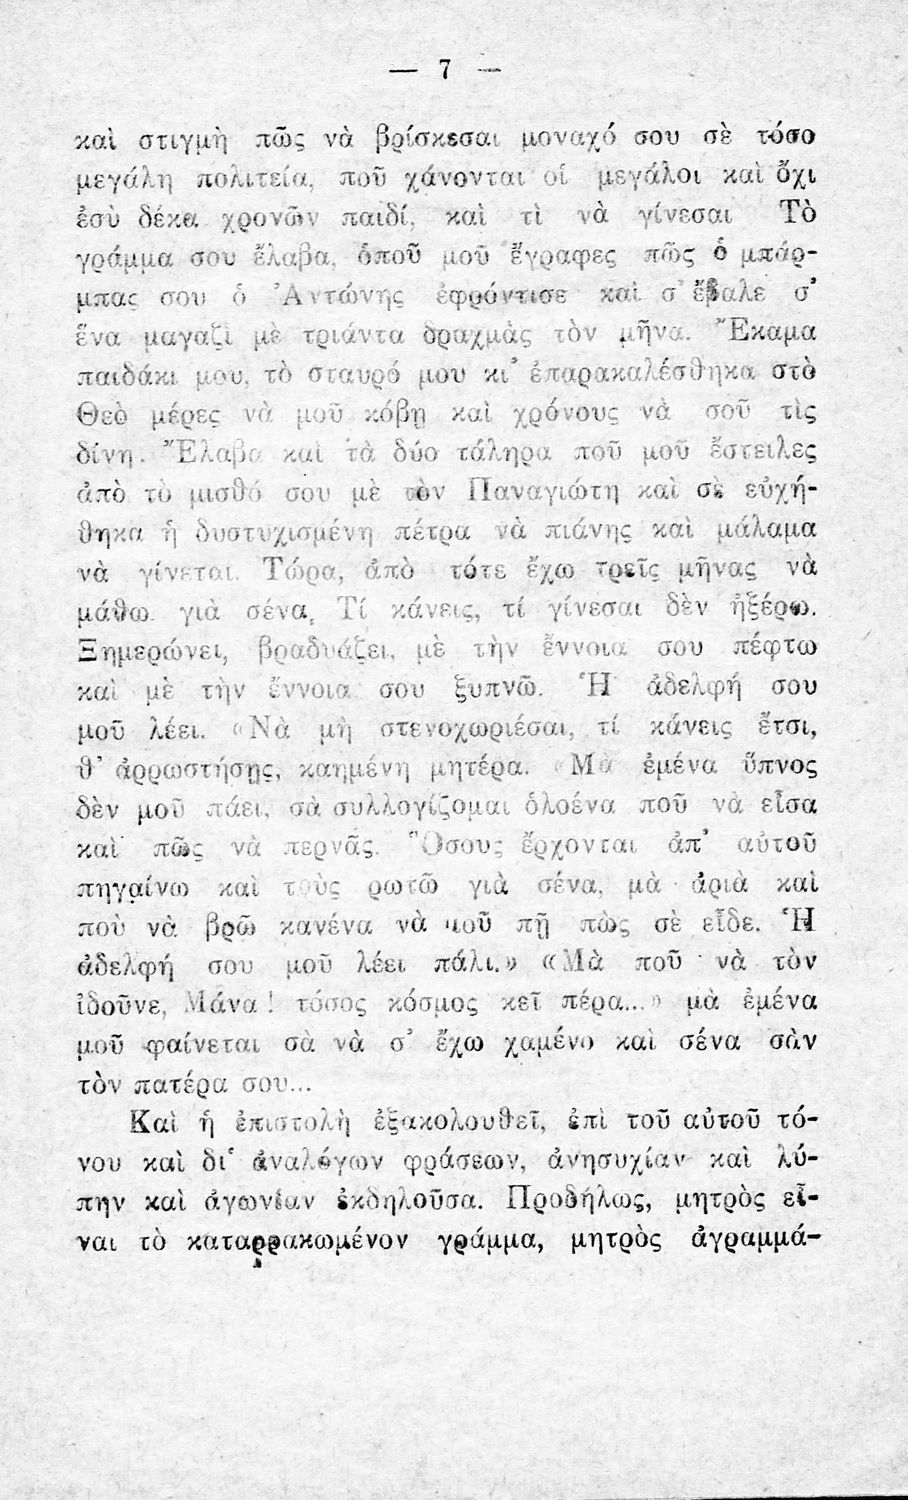 — 7 —
καὶ στιγμὴ πῶς νὰ βρίσκεσαι μοναχό σου σὲ τόσο
μεγάλη πολιτεία, ποῦ χάνονται οἱ μεγάλοι καὶ ὄχι
ἐσὺ δέκα χρονῶν παιδί, καὶ τὶ νὰ γίνεσαι Τὸ
γράμμα σου ἔλαβα, ὁποῦ μοῦ ἔγραφες πῶς ὁ μπάρ-
μπας σου ὁ Ἀντώνης ἐφρόντισε καὶ σ' ἔβαλε σ'
ἕνα μαγαζὶ μὲ τριάντα δραχμὰς τὸν μῆνα. Ἔκαμα
παιδάκι μου, τὸ σταυρό μου κι' ἐπαρακαλέσθηκα στὸ
Θεὸ μέρες νὰ μοῦ κόβῃ καὶ χρόνους νὰ σοῦ τὶς
δίνῃ. Ἔλαβα καὶ τὰ δύο τάληρα ποῦ μοῦ ἔστειλες
ἀπὸ τὸ μισθό σου μὲ τὸν Παναγιώτη καὶ σὲ εὐχή-
θηκα ἡ δυστυχισμένη πέτρα νὰ πιάνῃς καὶ μάλαμα
νὰ γίνεται. Τώρα, ἀπὸ τότε ἔχω τρεῖς μῆνας νὰ
μάθω γιὰ σένα, Τί κάνεις, τί γίνεσαι δὲν ἠξέρω.
Ξημερώνει, βραδυάζει, μὲ τὴν ἔννοια σου πέφτω
καὶ μὲ τὴν ἔννοια σου ξυπνῶ. Ἡ ἀδελφή σου
μοῦ λέει. «Νὰ μὴ στενοχωριέσαι, τί κάνεις ἔτσι,
θ' ἀρρωστήσῃς, καημένη μητέρα. «Μὰ ἐμένα ὕπνος
δὲν μοῦ πάει, σὰ συλλογίζομαι ὁλοένα ποῦ νὰ εἶσα
καὶ πῶς νὰ περνᾷς. Ὅσους ἔρχονται ἀπ' αὐτοῦ
πηγαίνω καὶ τοὺς ρωτῶ γιὰ σένα, μὰ ἀριὰ καὶ
ποὺ νὰ βρῶ κανένα νὰ μοῦ πῇ πὼς σὲ εἶδε. Ἡ
ἀδελφή σου μοῦ λέει πάλι.» «Μὰ ποῦ νὰ τὸν
ἰδοῦνε, Μάνα! τόσος κόσμος κεῖ πέρα...» μὰ ἐμένα
μοῦ φαίνεται σὰ νὰ σ' ἔχω χαμένο καὶ σένα σὰν
τὸν πατέρα σου...
Καὶ ἡ ἐπιστολὴ ἐξακολουθεῖ, ἐπὶ τοῦ αὐτοῦ τό-
νου καὶ δι' ἀναλόγων φράσεων, ἀνησυχίαν καὶ λύ-
πην καὶ ἀγωνίαν ἐκδηλοῦσα. Προδήλως, μητρὸς εἶ-
ναι τὸ καταρρακωμένον γράμμα, μητρὸς ἀγραμμά-